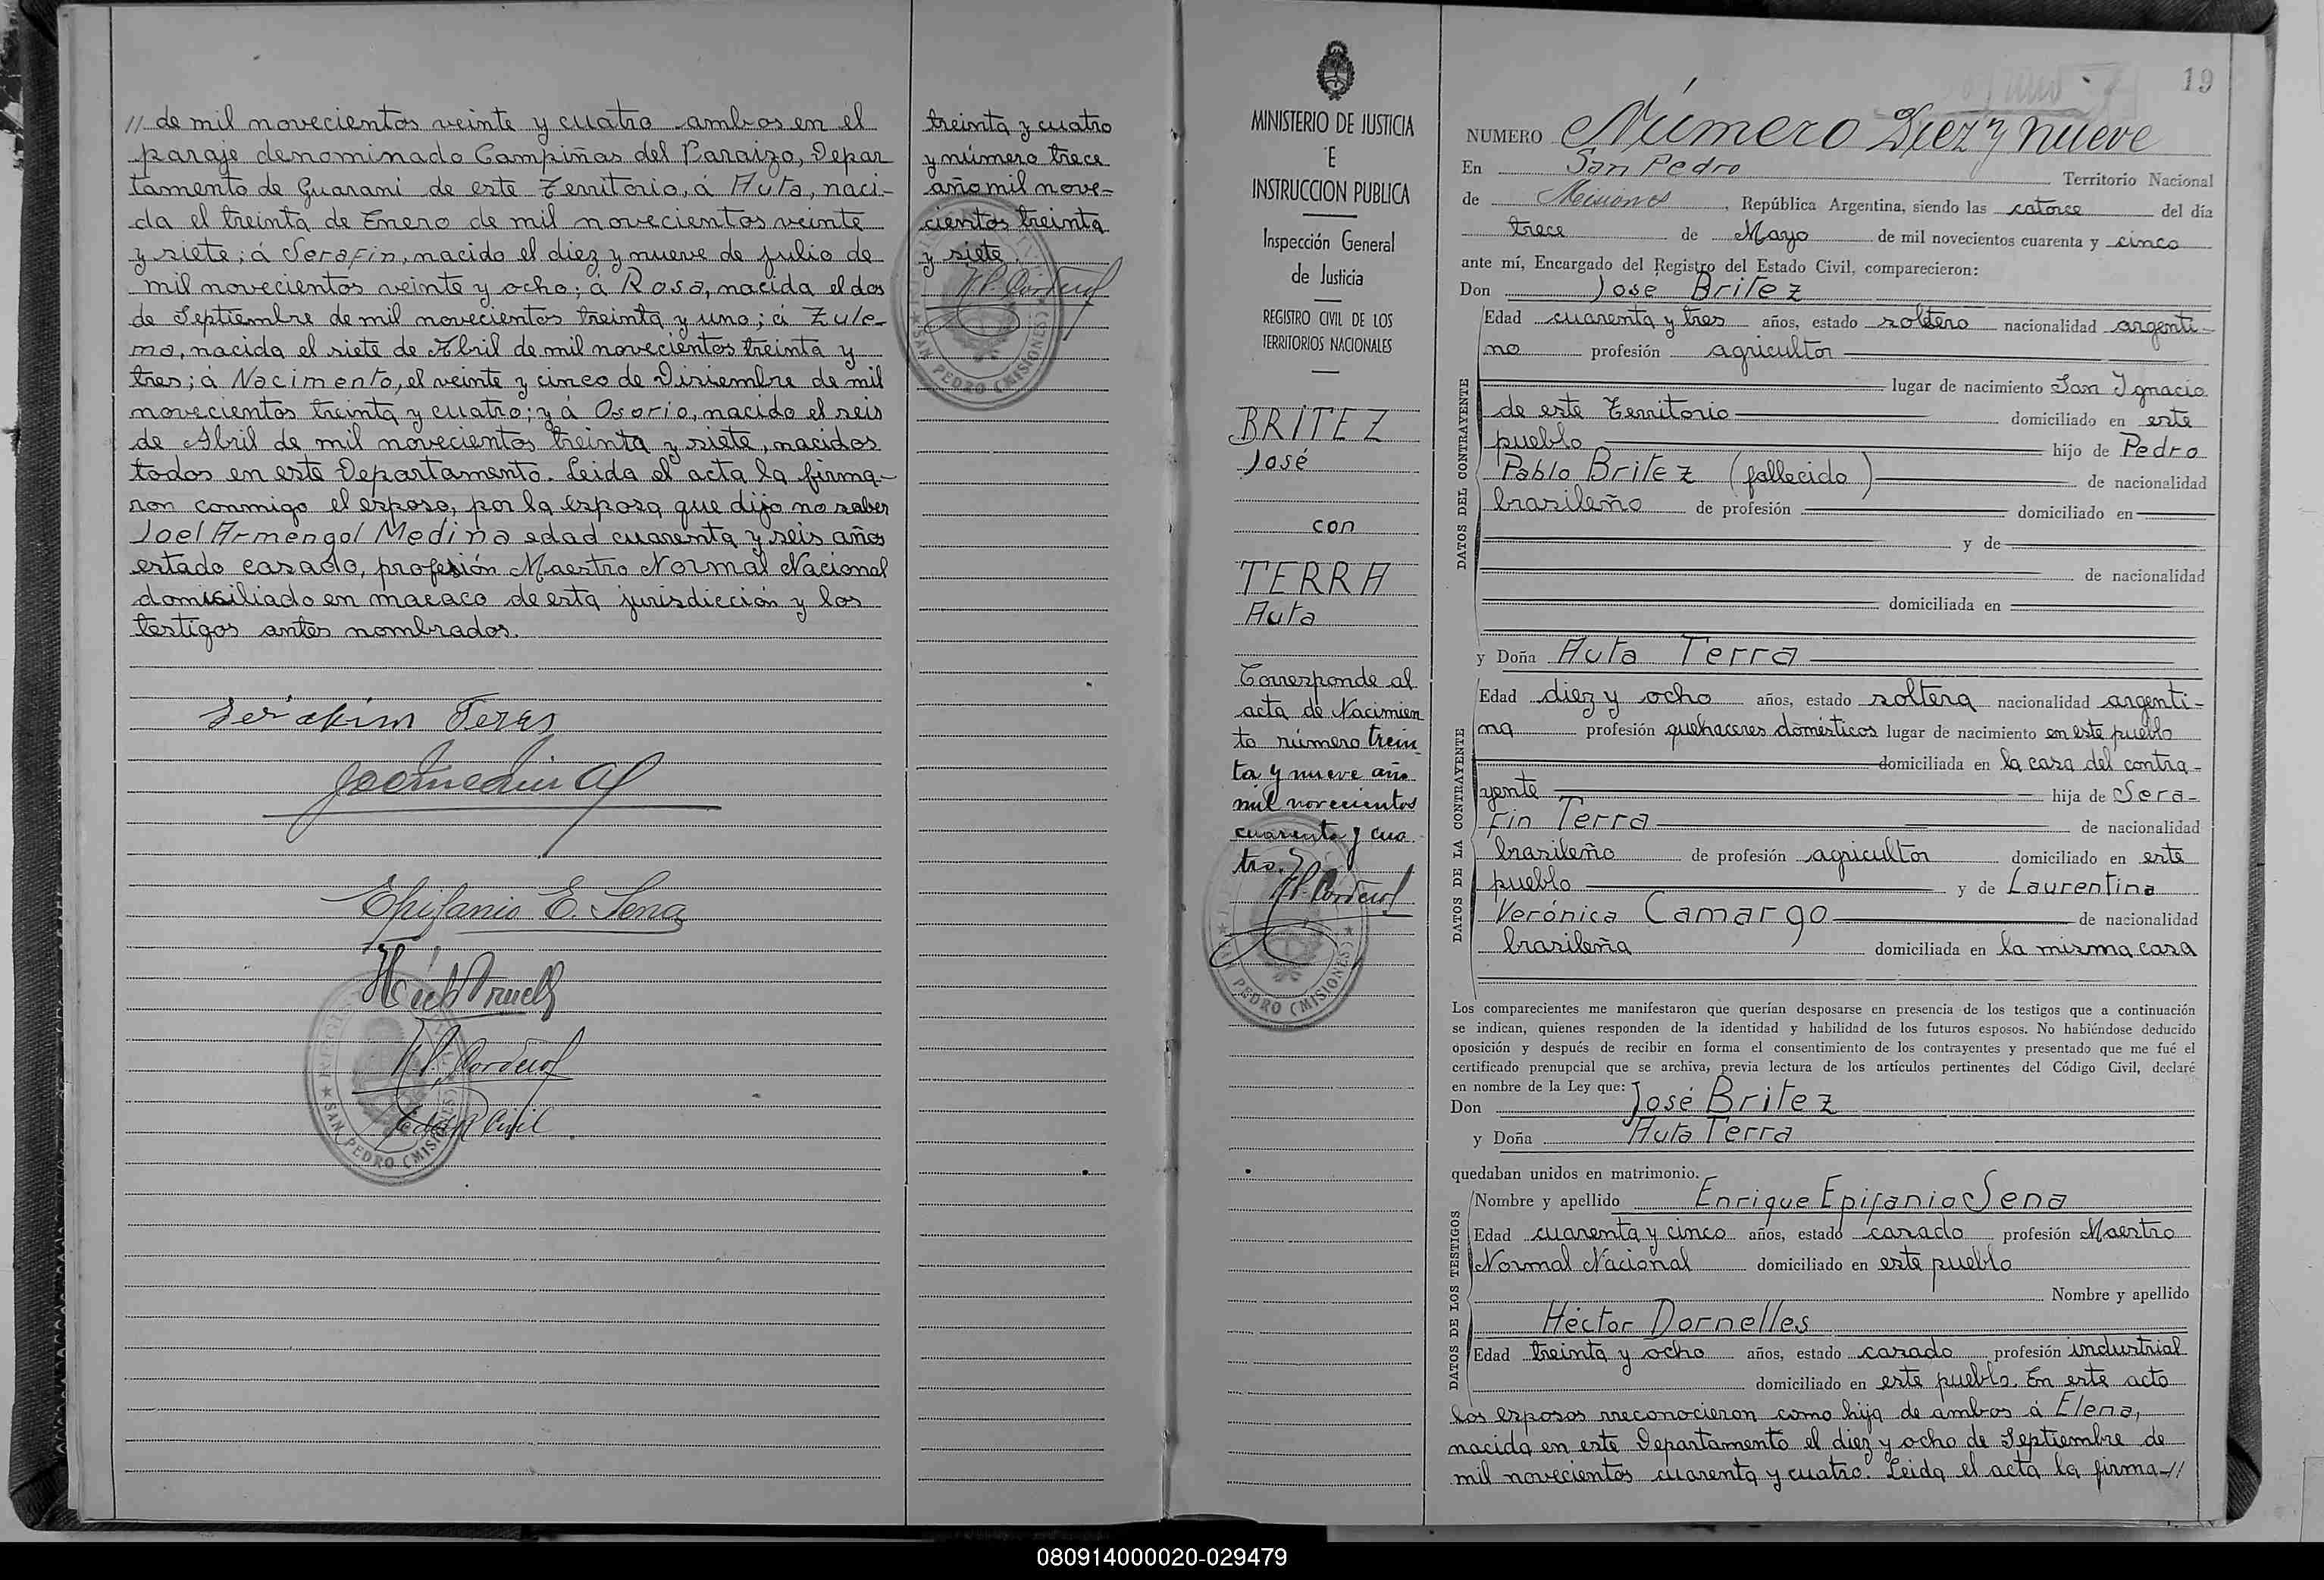 // de mil novecientos veinte y cuatro ambos en el
paraje denominado Campiñas del Paraizo, Depar
tamento de Guaraní de este Territorio, á Auta, naci-
da el treinta de Enero de mil novecientos veinte
y siete; á Serafín, nacido el diez y nueve de julio de
mil novecientos veinte y ocho; á Rosa, nacida el dos
de Septiembre de mil novecientos treinta y uno; á Zule-
ma, nacida el siete de Abril de mil novecientos treinta y
tres; á Nacimento, el veinte y cinco de Disiembre de mil
novecientos treinta y cuatro; y á Osorio, nacido el seis
de Abril de mil novecientos treinta y siete, nacidos
todos en este Departamento. Leida el acta la firma-
ron conmigo el esposo, por la esposa que dijo no saber
Joel Armengol Medina edad cuarenta y seis años
estado casado, profesión Maestro Normal Nacional
domisiliado en macaco de esta jurisdicción y los
testigos antes nombrados.
Epifanio E. Sena
H. P. Cordero
Edo. R. Civil
SAN PEDRO (MISIONES)
treinta y cuatro
y número trece
año mil nove-
cientos treinta
y siete
H. P. Cordero
SAN PEDRO (MISIONES)
MINISTERIO DE JUSTICIA
E
INSTRUCCION PUBLICA
Inspección General
de Justicia
REGISTRO CIVIL DE LOS
TERRITORIOS NACIONALES
BRITEZ
José
con
TERRA
Auta
Corresponde al
acta de Nacimien
to número trein
ta y nueve año
mil novecientos
cuarenta y cua
tro.
H. P. Cordero
SAN PEDRO (MISIONES)
19
NUMERO Número Diez y nueve
En San Pedro Territorio Nacional
de Misiones, República Argentina, siendo las catorce del día
trece de Mayo de mil novecientos cuarenta y cinco
ante mí, Encargado del Registro del Estado Civil, comparecieron:
Don José Britez
DATOS DEL CONTRAYENTE
Edad cuarenta y tres años, estado soltero nacionalidad argenti-
no profesión agricultor
lugar de nacimiento San Ignacio
de este Territorio domiciliado en este
pueblo hijo de Pedro
Pablo Britez (fallecido) de nacionalidad
brasileño de profesión domiciliado en
y de
de nacionalidad
domiciliada en
y Doña Auta Terra
DATOS DE LA CONTRAYENTE
Edad diez y ocho años, estado soltera nacionalidad argenti-
na profesión quehaceres domésticos lugar de nacimiento en este pueblo
domiciliada en la casa del contra-
yente hija de Sera-
fín Terra de nacionalidad
brasileño de profesión agricultor domiciliado en este
pueblo y de Laurentina
Verónica Camargo de nacionalidad
brasileña domiciliada en la misma casa
Los comparecientes me manifestaron que querían desposarse en presencia de los testigos que a continuación
se indican, quienes responden de la identidad y habilidad de los futuros esposos. No habiéndose deducido
oposición y después de recibir en forma el consentimiento de los contrayentes y presentado que me fué el
certificado prenupcial que se archiva, previa lectura de los artículos pertinentes del Código Civil, declaré
en nombre de la Ley que:
Don José Britez
y Doña Auta Terra
quedaban unidos en matrimonio.
DATOS DE LOS TESTIGOS
Nombre y apellido Enrique Epifanio Sena
Edad cuarenta y cinco años, estado casado profesión Maestro
Normal Nacional domiciliado en este pueblo
Nombre y apellido
Héctor Dornelles
Edad treinta y ocho años, estado casado profesión industrial
domiciliado en este pueblo. En este acto
los esposos rreconocieron como hija de ambos á Elena,
nacida en este Departamento el diez y ocho de Septiembre de
mil novecientos cuarenta y cuatro. Leida el acta la firma-//
080914000020-029479